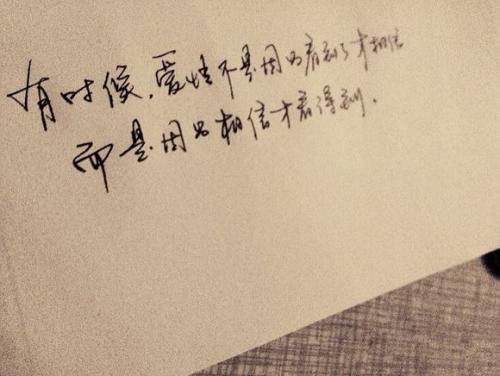 有时候，爱情不是因为看到了才相信
而是因为相信才看得到.